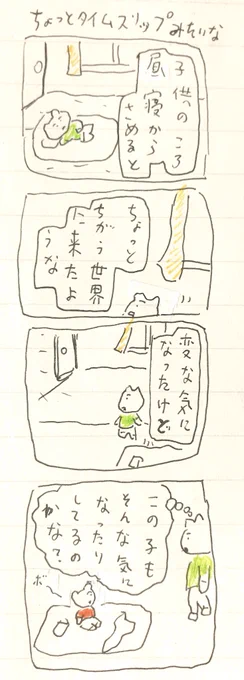 ちょっとタイムスリップみたいな
子供のころ
昼寝から
さめると
ちょっと
ちがう世界
に来たよ
うな
変な気に
なったけど
この子も
そんな気に
なったり
してるの
かな？
ボー